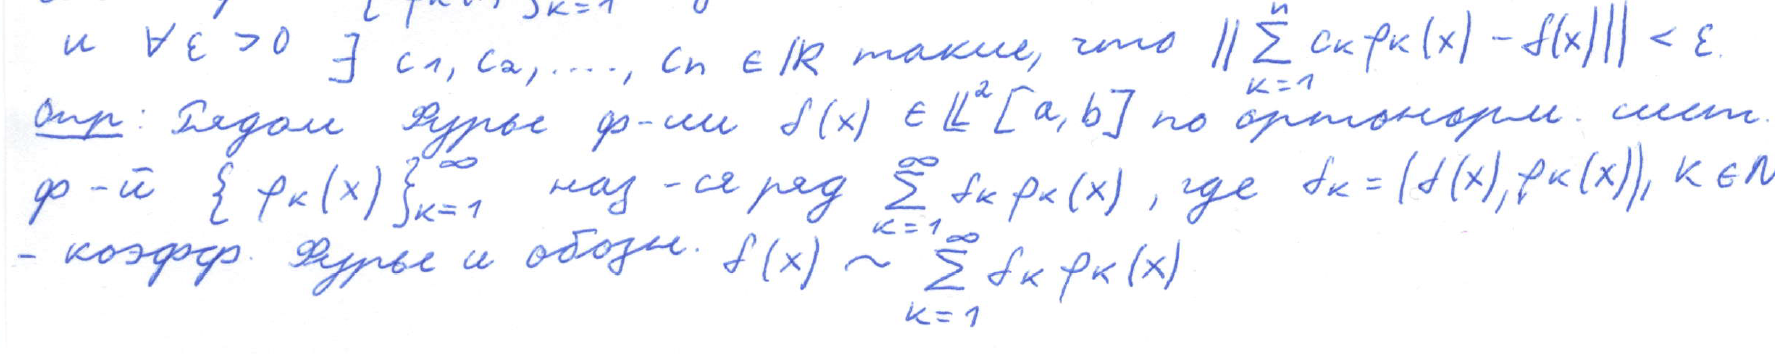 {φк(x)}к=1
и ∀ ε > 0 ∃ c1, c2, ...., cn ∈ ℝ такие, что ||∑ⁿк=1 cк φк(x) - f(x)|| < ε.
Опр: Рядом Фурье ф-ии f(x) ∈ 𝕃²[a, b] по ортонорм. сист.
ф-й {φк(x)}^∞к=1 наз-ся ряд ∑^∞к=1 fк φк(x), где fк = (f(x), φк(x)), к ∈ N
- коэфф. Фурье и обозн. f(x) ~ ∑^∞к=1 fк φк(x)